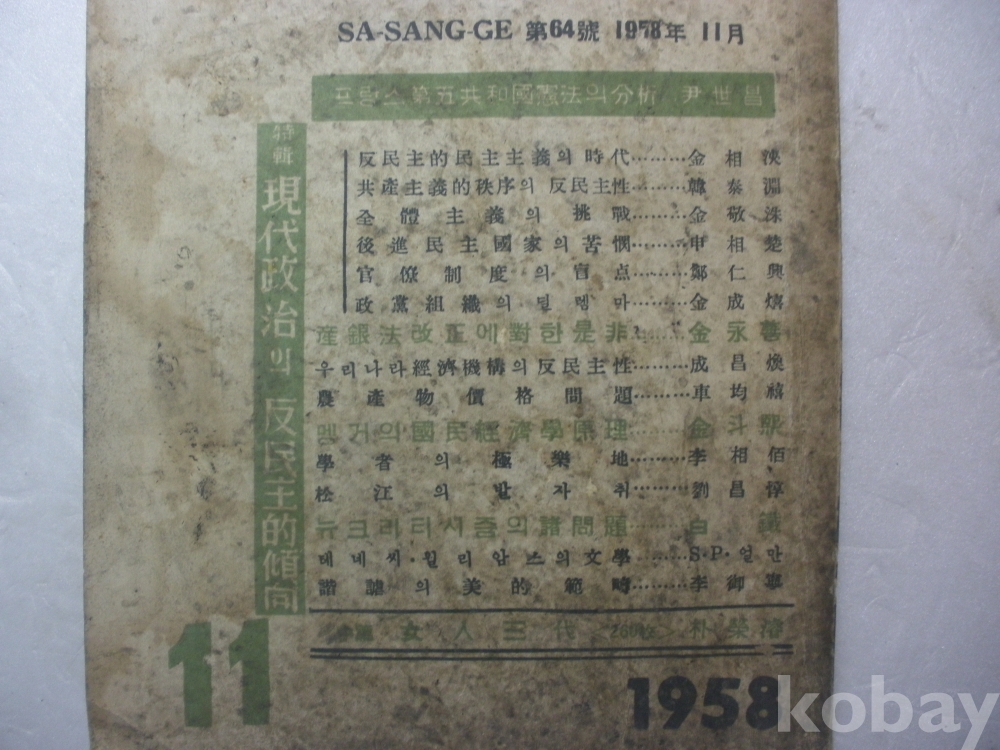 SA-SANG-GE 第64號 1958年 11月
프랑스第五共和國憲法의分析 尹世昌
特輯 現代政治의 反民主的傾向
反民主的民主主義의時代………金相浹
共産主義的秩序의反民主性……韓泰淵
全體主義의挑戰………金敬洙
後進民主國家의苦憫……申相楚
官僚制度의盲点………鄭仁興
政黨組織의딜렘마……金成熺
産銀法改正에對한是非……金永善
우리나라經濟機構의反民主性……成昌煥
農産物價格問題………車均禧
멩거의國民經濟學原理……金斗熙
學者의極樂地………李相佰
松江의발자취………劉昌惇
뉴크리티시즘의諸問題……白鐵
테네씨·윌리암스의文學………S·P·얼만
諧謔의美的範疇………李御寧
女人三代 朴榮濬
11
1958
kobay